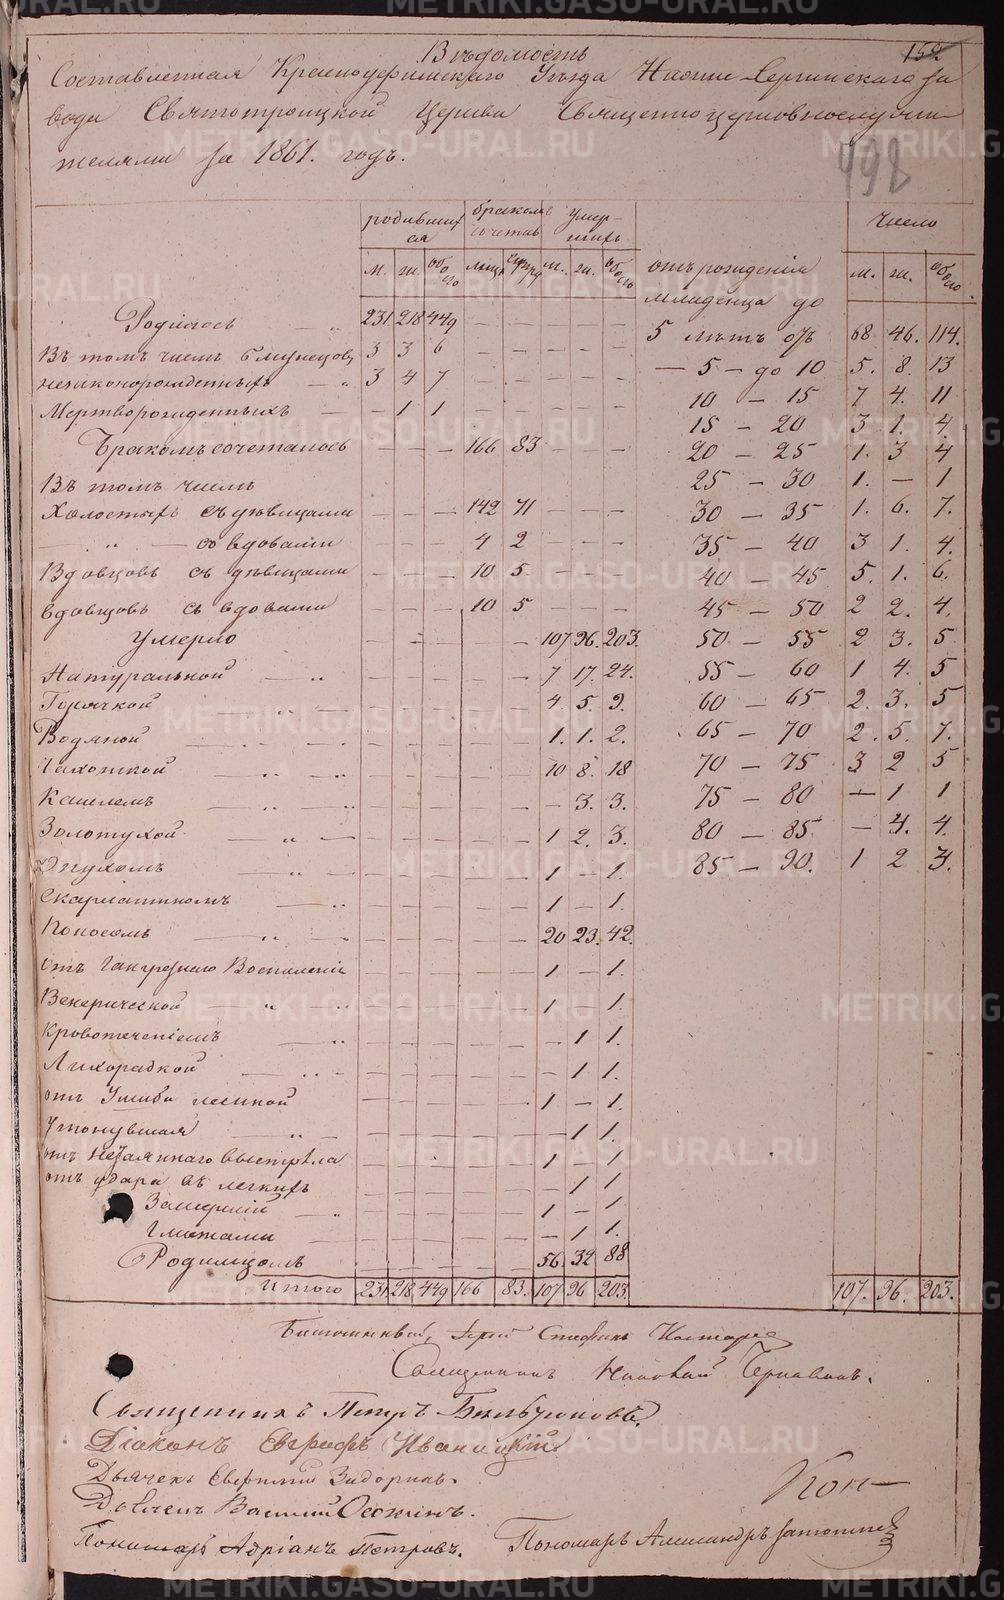 Вѣдомость
152
Составленная Красноуфимскаго Уѣзда Нижне-Сергинскаго за
вода Святотроицкой Церкви Священноцерковнослужи
телями за 1861. годъ.
498
родивших ся бракомъ сочетав умер- шихъ Число
м. ж. обо его лицъ супру м. ж. обоего отъ рожденія младенца до м. ж. обоего
Родилось 231. 218 449 5 лѣтъ 68 46. 114.
Въ томъ числѣ близнецовъ 3 3 6 — 5 — до 10 5. 8. 13
незаконорожденныхъ 3 4 7 10 — 15 7 4. 11
Мертворожденныхъ — 1 1 15 — 20 3 1. 4.
Бракомъ сочеталось 166 83 20 — 25 1. 3 4
Въ томъ числѣ 25 — 30 1. — 1
Холостыхъ съ дѣвицами 142 71 30 — 35 1. 6. 7.
— „ — со вдовами 4 2 35 — 40 3 1. 4.
Вдовцовъ съ дѣвицами 10 5 40 — 45 5. 1. 6.
вдовцовъ съ вдовами 10 5 45 — 50 2 2. 4.
Умерло 107 96. 203. 50 — 55 2 3. 5
Натуральной 7 17. 24. 55 — 60 1 4. 5
Горячкой 4. 5. 9. 60 — 65 2. 3. 5
Водяной 1. 1. 2. 65 — 70 2. 5. 7.
Чахоткой 10 8. 18 70 — 75 3 2 5
Кашлемъ — 3. 3. 75 — 80 — 1 1
Золотухой 1 2. 3. 80 — 85 — 4. 4.
Опухомъ 1 — 1. 85 — 90. 1 2 3.
Скарлатиномъ 1 — 1.
Поносомъ 20 23. 42.
отъ Гангрезнаго Воспаленія 1 — 1.
Венерической 1 — 1.
Кровотеченіемъ — 1 1.
Лихорадкой — 1 1.
отъ Ушиба 1 — 1.
Утонувшая — 1 1.
отъ незаяннаго выстрѣла 1 — 1.
отъ удара въ легкихъ — 1 1
1 — 1
— 1 1.
Родимцомъ 56. 32 88
Итого 231. 218. 449 166 83. 107 96 203. 107. 96. 203.
Стефанъ
Священникъ Николай
Священникъ Петръ
Діаконъ Евграфъ Иваницкій
Дьячекъ
Василій
Кон—
Пономарь Адріанъ Петровъ.
Пономарь Александръ
METRIKI.GASO-URAL.RU